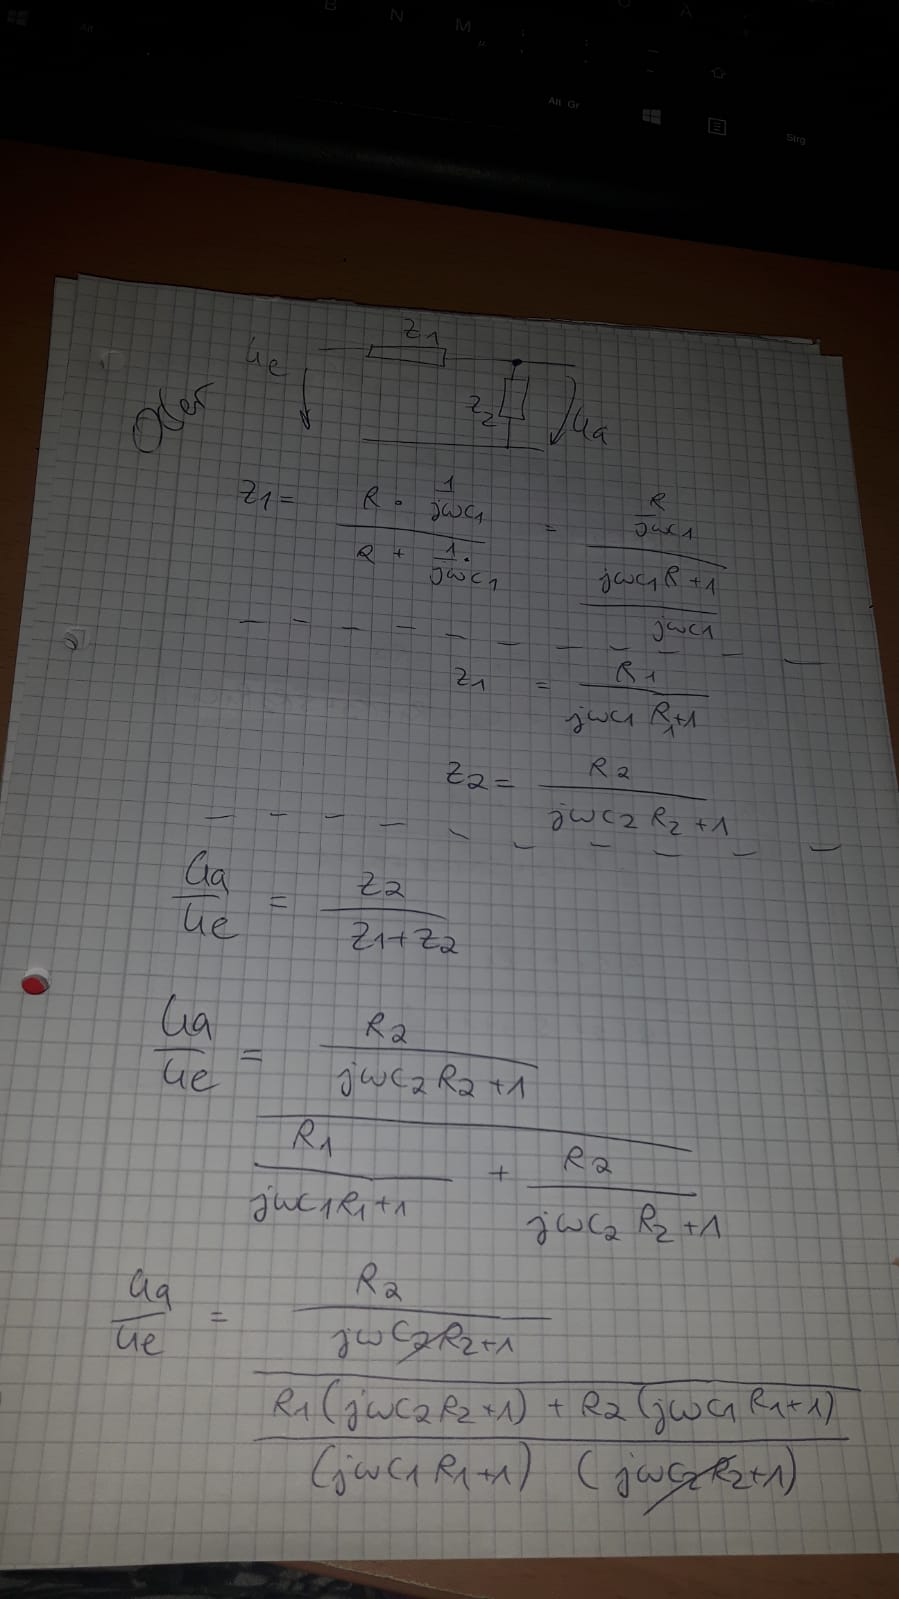 B N M ; : _
µ , . -
Alt
Alt Gr
Strg
Z1
Ue
Z2
Ua
Z1 = (R · 1/(jωC1)) / (R + 1/(jωC1)) = (R/(jωC1)) / ((jωC1R+1)/(jωC1))
Z1 = R1 / (jωC1 R1+1)
Z2 = R2 / (jωC2 R2 +1)
Ua/Ue = Z2 / (Z1+Z2)
Ua/Ue = (R2 / (jωC2 R2+1)) / (R1 / (jωC1R1+1) + R2 / (jωC2 R2+1))
Ua/Ue = (R2 / (jωC2R2+1)) / ((R1(jωC2R2+1) + R2(jωC1R1+1)) / ((jωC1R1+1) (jωC2R2+1)))